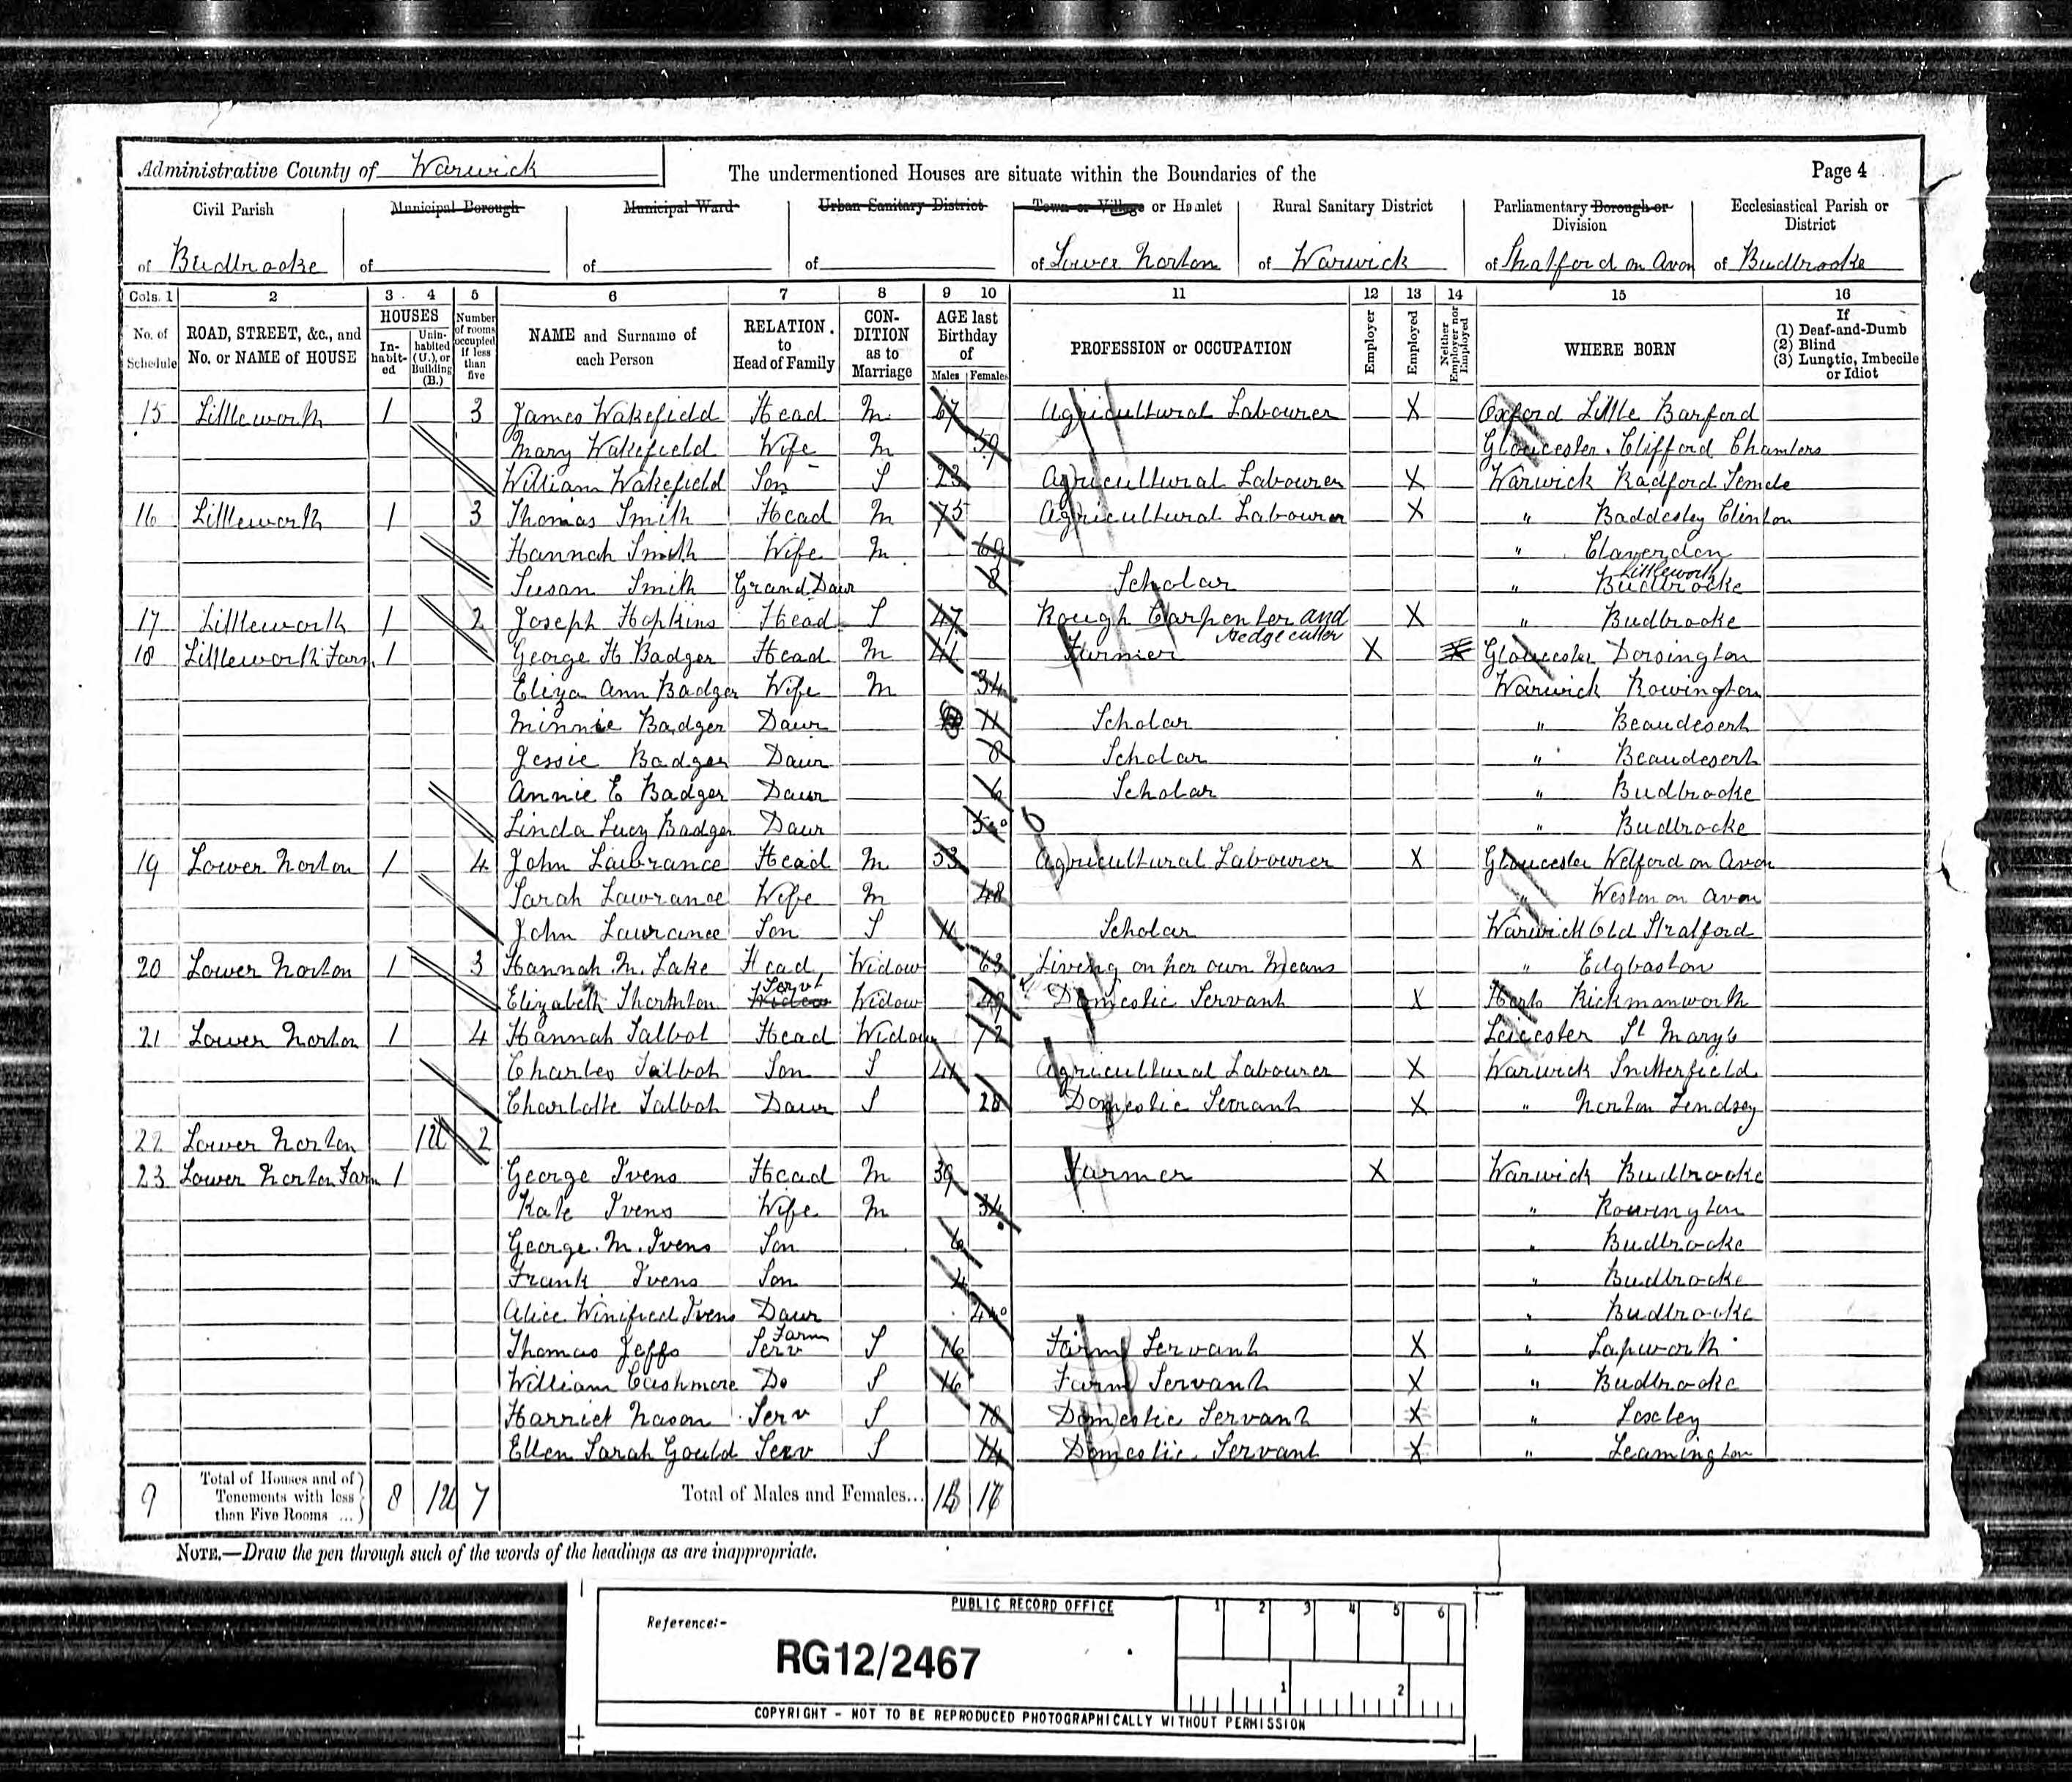 Administrative County of Warwick
The undermentioned Houses are situate within the Boundaries of the
Page 4
Civil Parish of Budbrooke
Municipal Borough of
Municipal Ward of
Urban Sanitary District of
Town or Village or Hamlet of Lower Norton
Rural Sanitary District of Warwick
Parliamentary Borough or Division of Stratford on Avon
Ecclesiastical Parish or District of Budbrooke
Cols. 1 2 3 4 5 6 7 8 9 10 11 12 13 14 15 16
No. of Schedule
ROAD, STREET, &c., and No. or NAME of HOUSE
HOUSES
In-habit-ed
Unin-habited (U.), or Building (B.)
Number of rooms occupied if less than five
NAME and Surname of each Person
RELATION to Head of Family
CON-DITION as to Marriage
AGE last Birthday of
Males Females
PROFESSION or OCCUPATION
Employer
Employed
Neither Employer nor Employed
WHERE BORN
If
(1) Deaf-and-Dumb
(2) Blind
(3) Lunatic, Imbecile or Idiot
15 Littleworth 1 3 James Wakefield Head M 67 Agricultural Labourer X Oxford Little Barford
Mary Wakefield Wife M 59 Gloucester. Clifford Chambers
William Wakefield Son S 23 Agricultural Labourer X Warwick Radford Semele
16 Littleworth 1 3 Thomas Smith Head M 75 Agricultural Labourer X " Baddesley Clinton
Hannah Smith Wife M 69 " Claverdon
Susan Smith Grand Daur 8 Scholar " Littleworth Budbrooke
17 Littleworth 1 2 Joseph Hopkins Head S 47 Rough Carpenter and Hedge cutter X " Budbrooke
18 Littleworth Farm 1 George H Badger Head M 41 Farmer X X Gloucester Dorsington
Eliza Ann Badger Wife M 34 Warwick Rowington
Minnie Badger Daur 11 Scholar " Beaudesert
Jessie Badger Daur 8 Scholar " Beaudesert
Annie E Badger Daur 6 Scholar " Budbrooke
Linda Lucy Badger Daur " Budbrooke
19 Lower Norton 1 4 John Lawrance Head M 53 Agricultural Labourer X Gloucester Welford on Avon
Sarah Lawrance Wife M 48 " Weston on Avon
John Lawrance Son S 11 Scholar Warwick Old Stratford
20 Lower Norton 1 3 Hannah M. Lake Head Widow 63 Living on her own Means " Edgbaston
Elizabeth Thornton Servt Widow Widow 49 Domestic Servant X Herts Rickmanworth
21 Lower Norton 1 4 Hannah Talbot Head Widow 72 Leicester St Mary's
Charles Talbot Son S 44 Agricultural Labourer X Warwick Snitterfield
Charlotte Talbot Daur S 28 Domestic Servant X " Norton Lindsey
22 Lower Norton 1U 2
23 Lower Norton Farm 1 George Ivens Head M 39 Farmer X Warwick Budbrooke
Kate Ivens Wife M 34 " Rowington
George. M. Ivens Son 6 " Budbrooke
Frank Ivens Son " Budbrooke
Alice Winifred Ivens Daur " Budbrooke
Thomas Jeffs Farm Serv S 16 Farm Servant X " Lapworth
William Cashmore Do S 16 Farm Servant X " Budbrooke
Harriet Nason Serv S 18 Domestic Servant X " Loxley
Ellen Sarah Gould Serv S 14 Domestic Servant X " Leamington
9 Total of Houses and of Tenements with less than Five Rooms ... 8 1U 7 Total of Males and Females...
NOTE.—Draw the pen through such of the words of the headings as are inappropriate.
PUBLIC RECORD OFFICE
1 2 3 4 5 6
Reference:-
RG12/2467
1 2
COPYRIGHT - NOT TO BE REPRODUCED PHOTOGRAPHICALLY WITHOUT PERMISSION